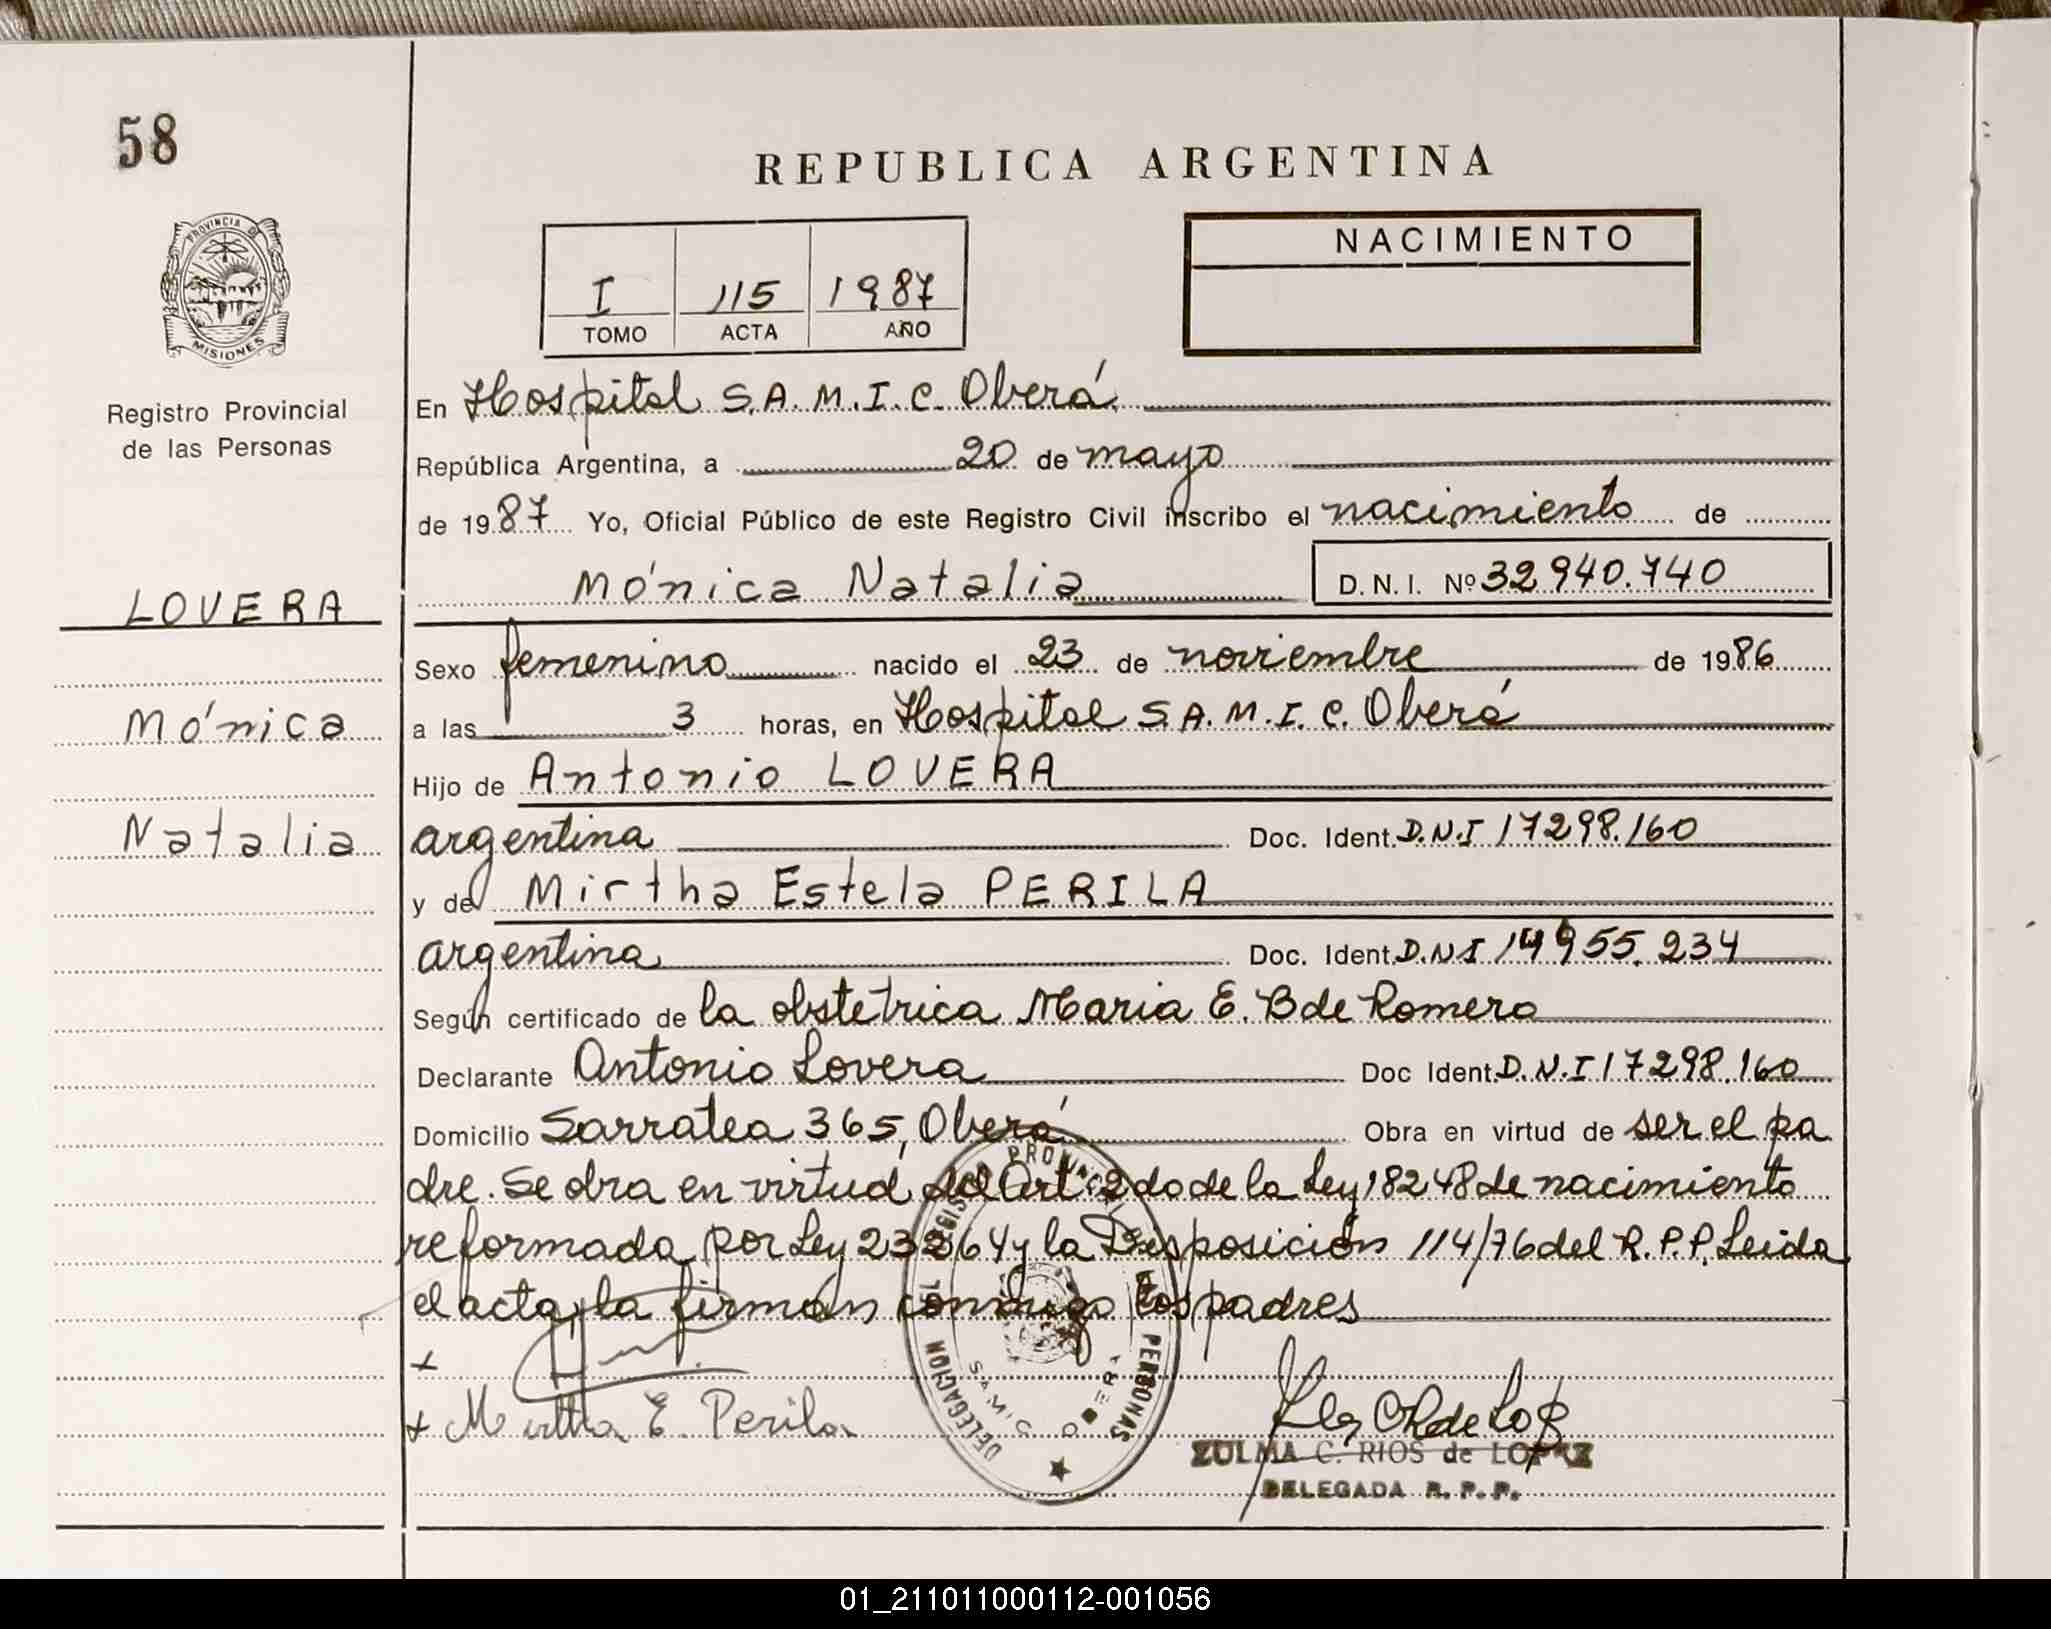 58
REPUBLICA ARGENTINA
PROVINCIA DE
MISIONES
Registro Provincial
de las Personas
I 115 1987
TOMO ACTA AÑO
NACIMIENTO
En Hospital S.A.M.I.C. Oberá
República Argentina, a 20 de mayo
de 1987 Yo, Oficial Público de este Registro Civil inscribo el nacimiento de
Mónica Natalia D.N.I. Nº 32940.740
LOVERA
Mónica
Natalia
Sexo femenino nacido el 23 de noviembre de 1986
a las 3 horas, en Hospital S.A.M.I.C. Oberá
Hijo de Antonio LOVERA
argentina Doc. Ident. D.N.I 17298.160
y de Mirtha Estela PERILA
argentina Doc. Ident. D.N.I 14955.234
Según certificado de la obstetrica Maria E. B de Romero
Declarante Antonio Lovera Doc Ident. D.N.I 17298.160
Domicilio Sarratea 365, Oberá Obra en virtud de ser el pa
dre. Se obra en virtud del Art. 2do de la Ley 18248 de nacimiento
reformada por Ley 23264 y la Disposición 114/76 del R.P.P. Leida
el acta, la firman conmigo los padres
+
+ Mirtha E. Perila
DELEGACION DEL REGISTRO PROVINCIAL DE LAS PERSONAS
SAMIC OBERA
ZULMA C. RIOS de LOPEZ
DELEGADA R.P.P.
01_211011000112-001056